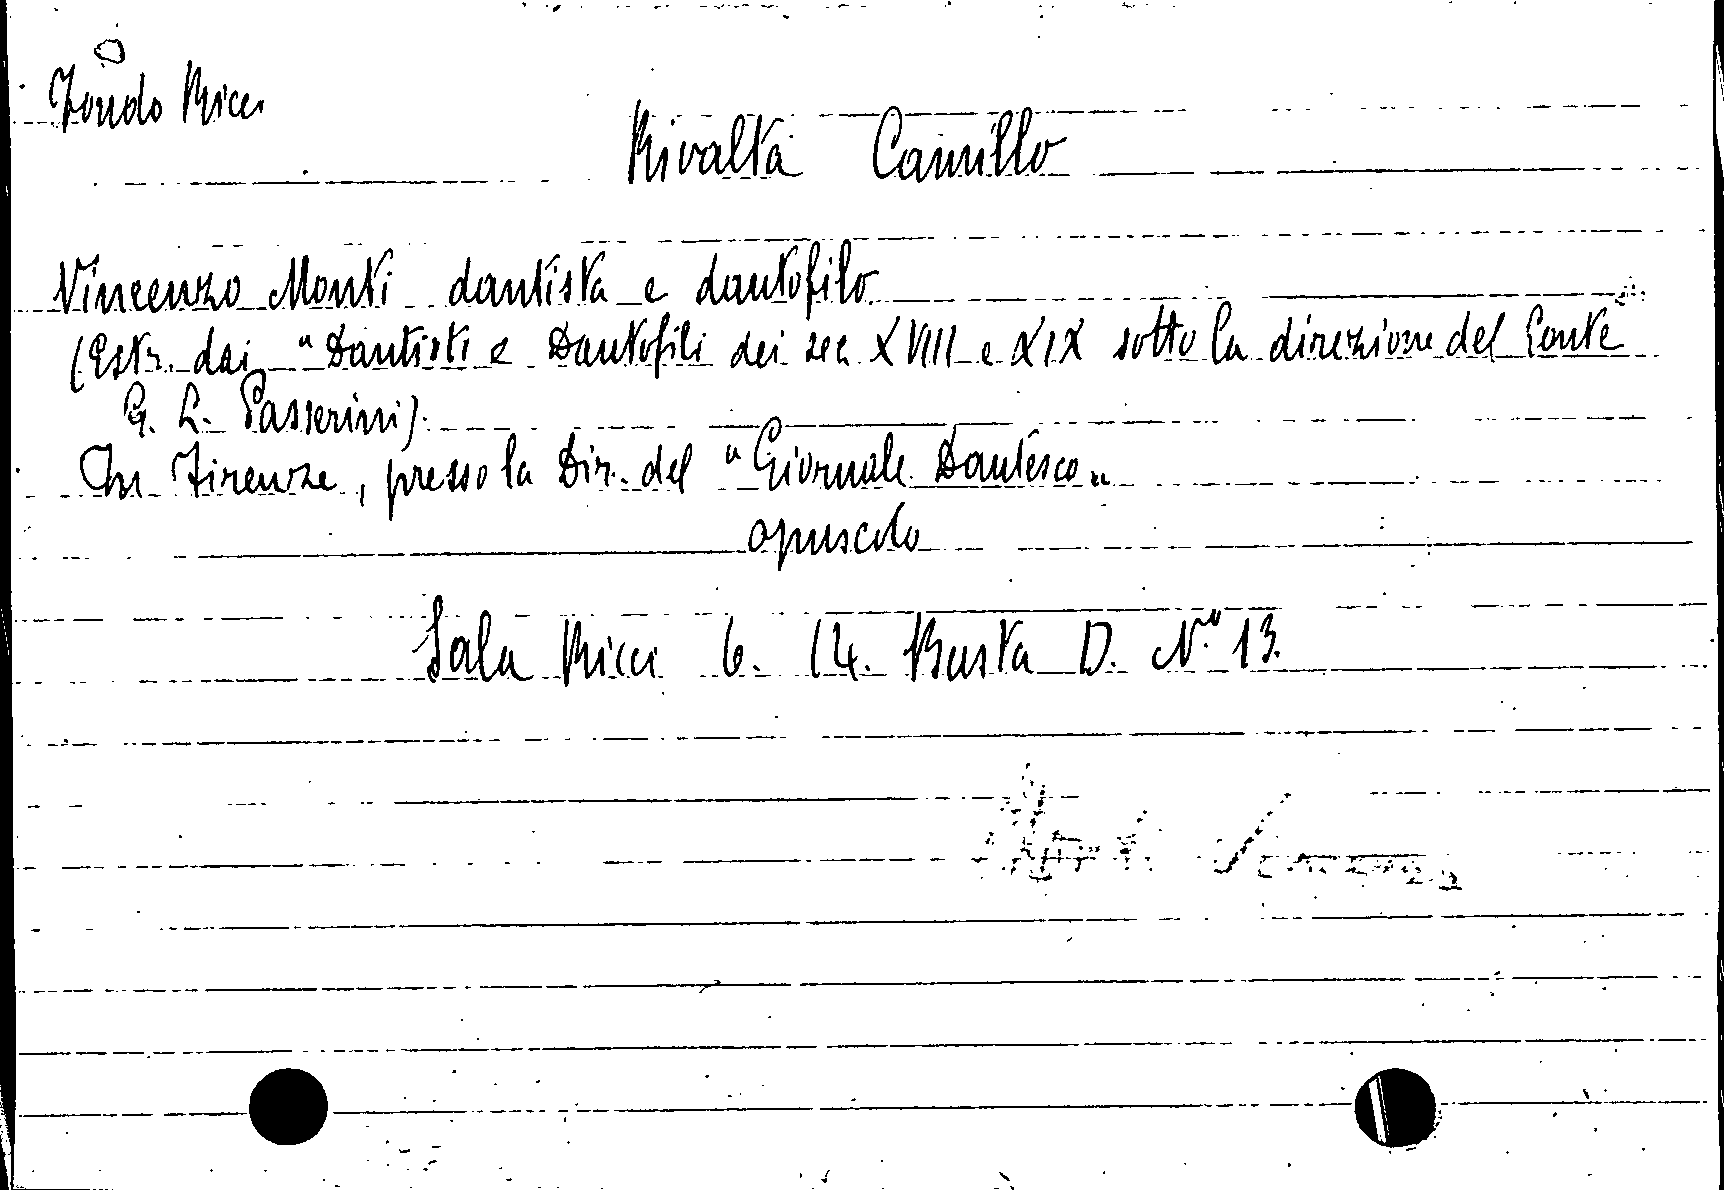 Fondo Ricci
Rivalta Camillo
Vincenzo Monti dantista e dantofilo
(Estr. dai "Dantisti e Dantofili dei sec. XVIII e XIX sotto la direzione del Conte
G. L. Passerini).
In Firenze, presso la Dir. del "Giornale Dantesco"
opuscolo
Sala Ricci 6. 14. Busta D. N.° 13.
Monti Vincenzo